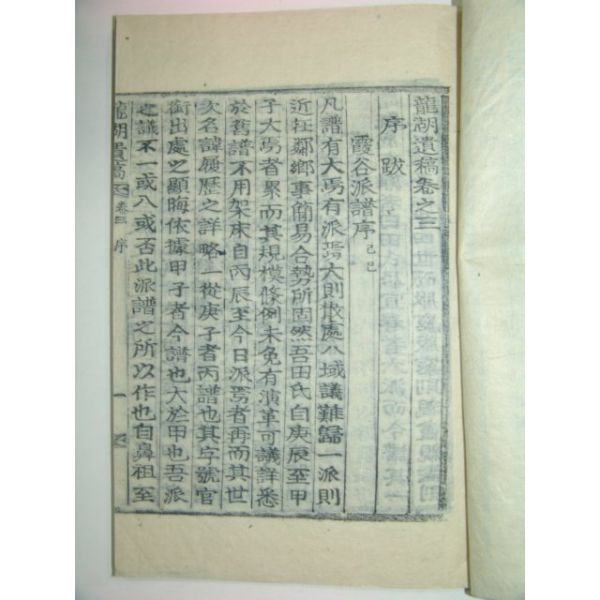 龍湖遺稿卷之三
序跋
霞谷派譜序 己巳
凡譜有大焉有派焉大則散處八域議難歸一派則
近在鄰鄕事簡易合勢所固然吾田氏自庚辰至甲
子大焉者聚而其規模條例未免有演革可議詳悉
於舊譜不用架床自丙辰至今日派焉者再而其世
次名諱履歷之詳略一從庚子者丙譜也其字號官
銜出處之顯晦依據甲子者今譜也大於甲也吾派
之議不一或入或否此派譜之所以作也自鼻祖至
龍湖遺稿 卷三 序 一